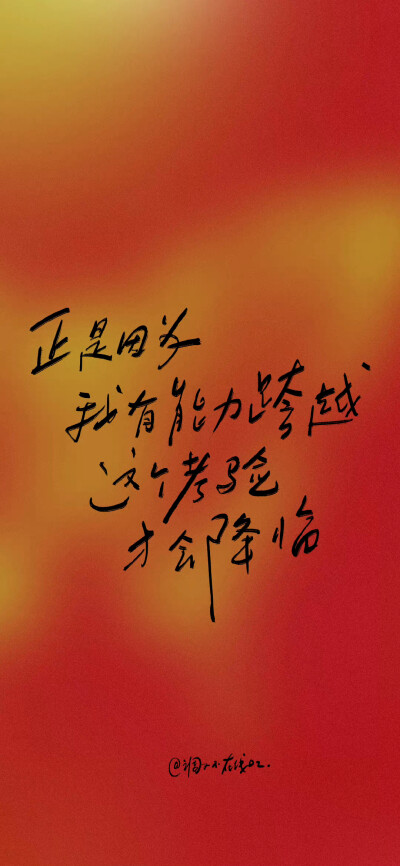 正是因为
我有能力跨越
这个考验
才会降临